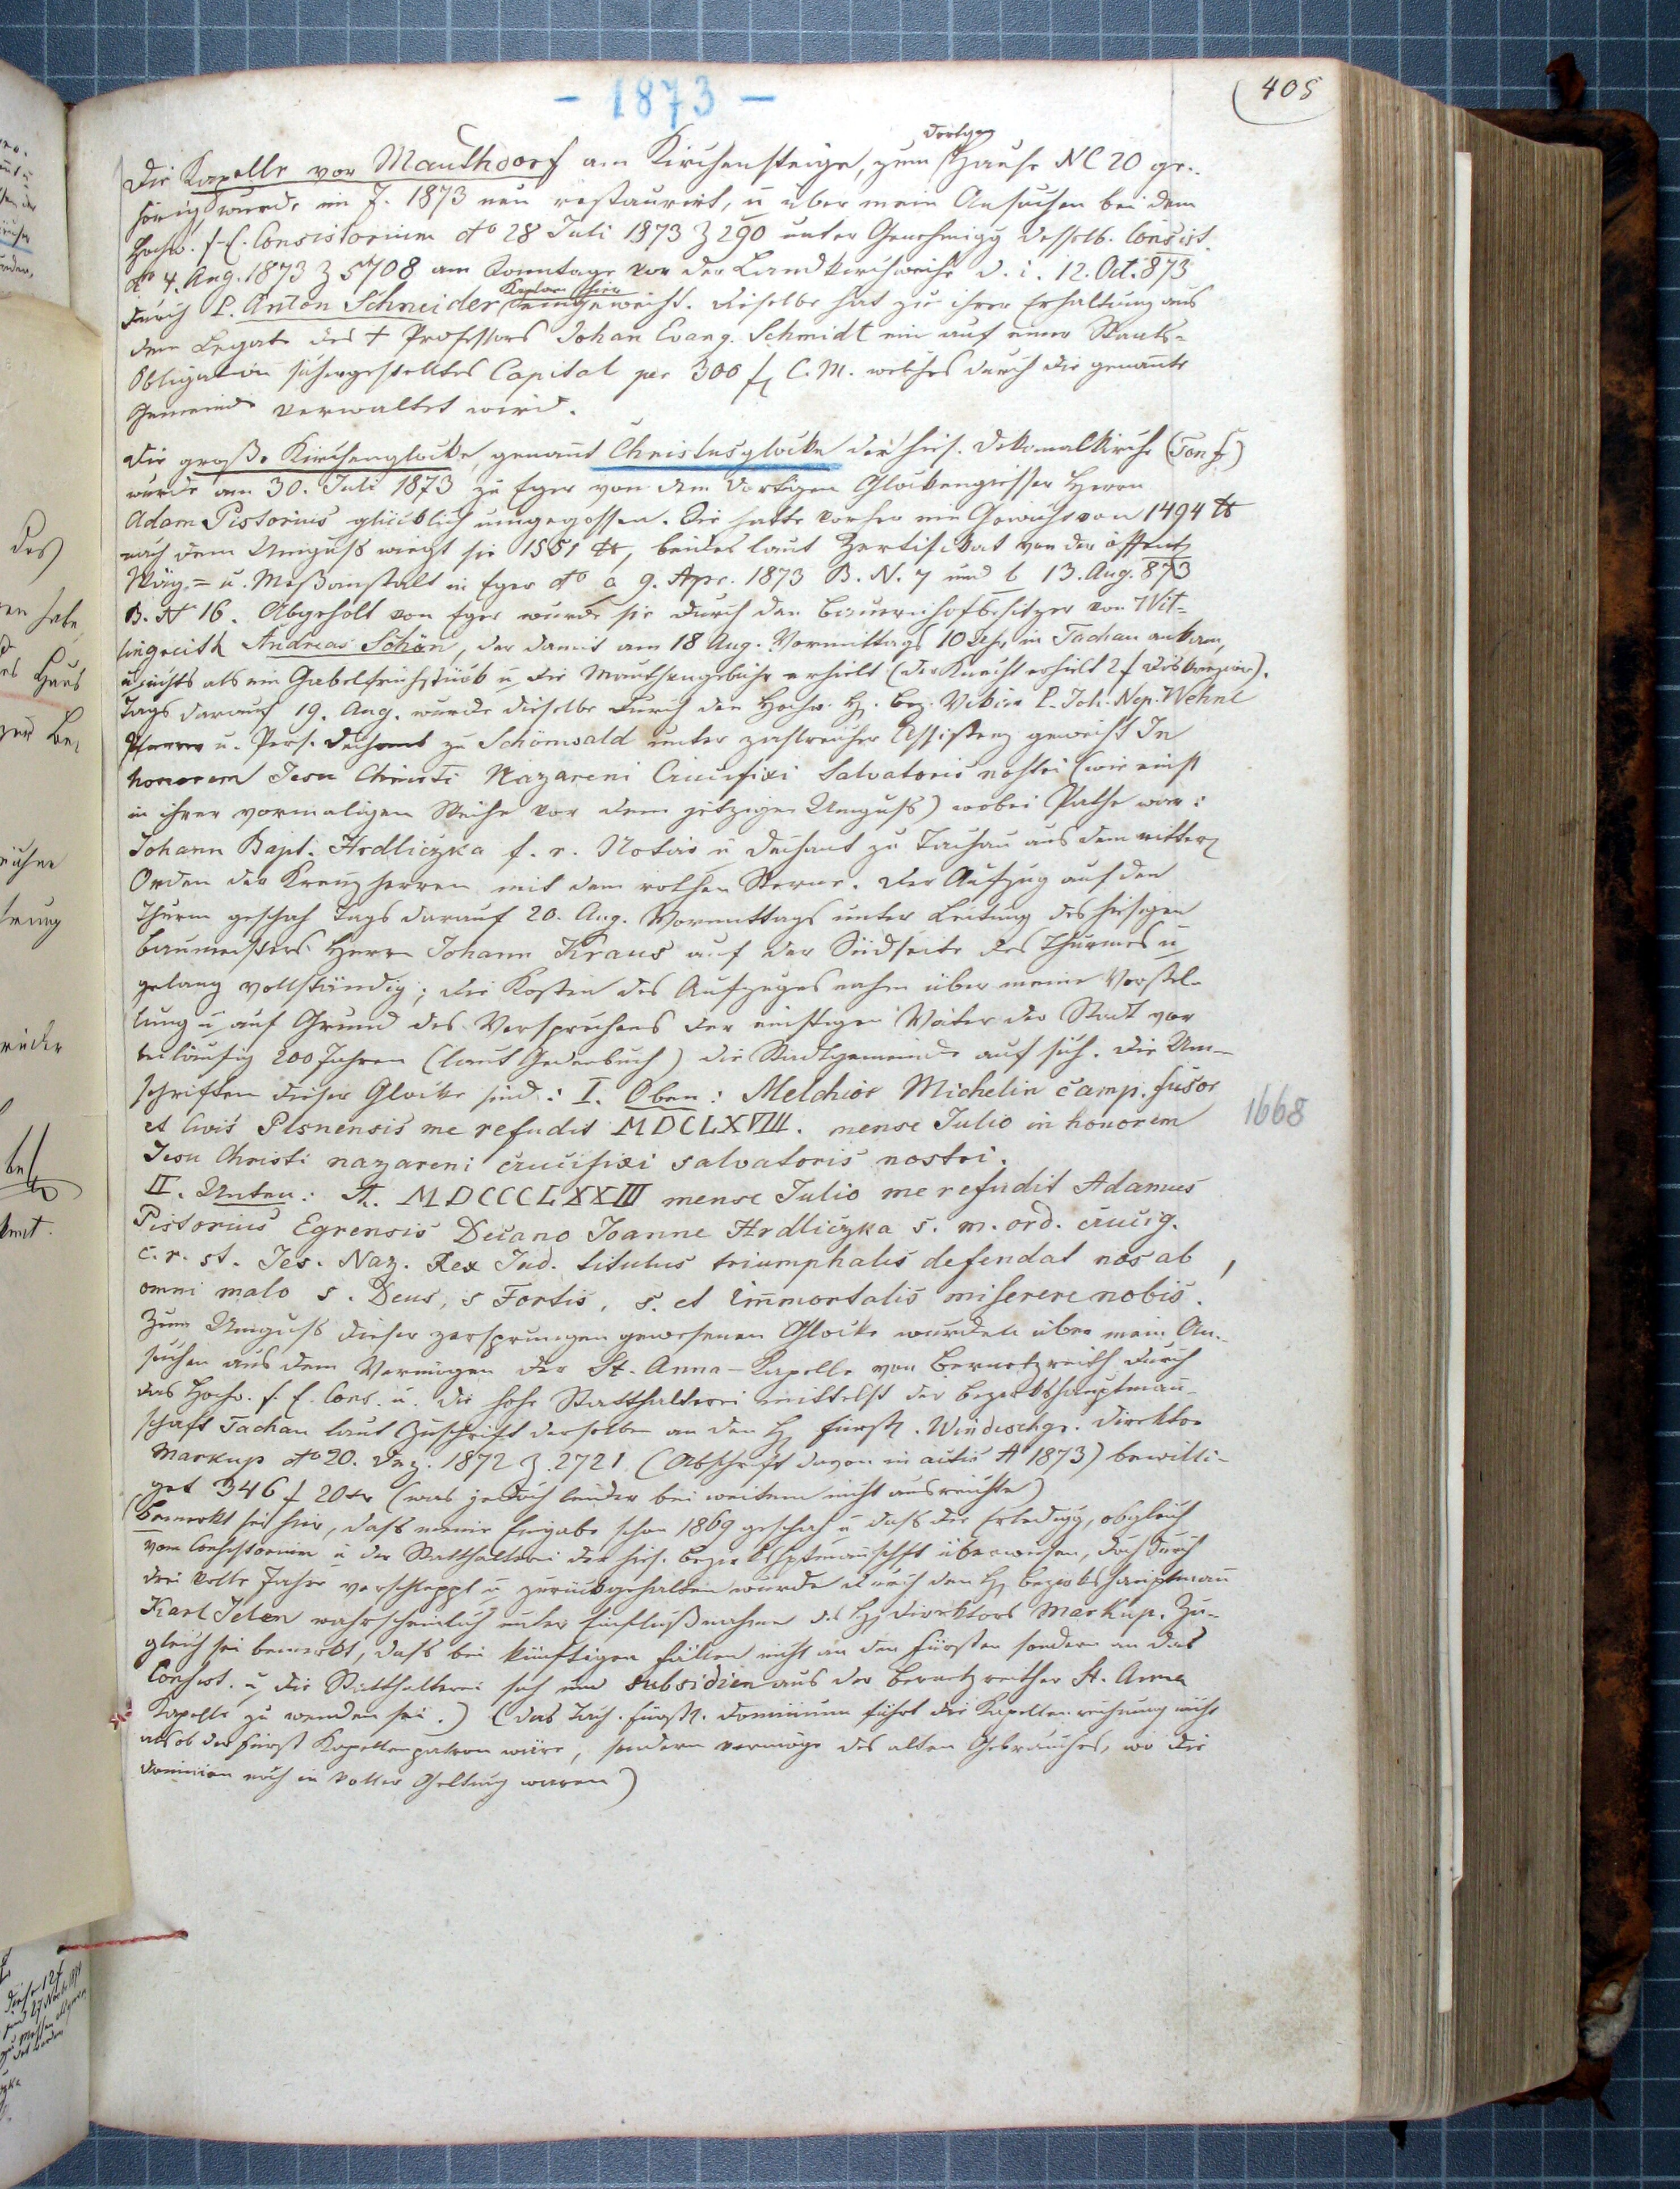 - 1873 -
405
dortigen
Die Kapelle vor Mauthdorf am Kirchensteige, zum Hause NC 20 ge-
hörig wurde im J. 1873 neu restaurirt, u über mein Ansuchen bei dem
Hochw. f. e. Consistorium dto 28 Juli 1873 Z 290 unter Genehmigg desselb. Consist.
dto 4. Aug. 1873 Z 5708 am Sonntage vor der Landkirchweihe d. i. 12. Oct. 873
Kaplan hier
durch P. Anton Schneider eingeweiht. Dieselbe hat zu ihrer Erhaltung aus
dem Legate des † Professors Johan Evang. Schmidt ein auf einer Staats-
Obligation sichergestelltes Capital per 300 f C. M. welches durch die genannte
Gemeinde verwaltet wird.
Die große Kirchenglocke, genannt Christusglocke der hies. Dekanalkirche (Ton f)
wurde am 30. Juli 1873 zu Eger von dem dortigen Glockengiesser Herrn
Adam Pistorius glücklich umgegossen. Sie hatte vorher ein Gewicht von 1494 ℔
nach dem Umguss wiegt sie 1551 ℔, beides laut Zertifikat von der öffentl
Wäg- u. Meßanstalt in Eger dto a 9. Apr. 1873 B. N. 7 und b 13. Aug. 873
B. N 16. Abgeholt von Eger wurde sie durch den Bauernhofbesitzer von Wit-
lingreith Andreas Schön, der damit am 18 Aug. Vormittags 10 Uhr in Tachau ankam,
u nichts als ein Gabelfrühstück u die Mauthengebühr erhielt (der Knecht erhielt 2 f Discretion).
Tags darauf 19. Aug. wurde dieselbe durch den Hochw. H. Bez. Vikär P. Joh. Nep. Wehnl
Pfarrer u. Pers. Dechant zu Schönwald unter zahlreicher Assistenz geweiht In
honorem Jesu Christi Nazareni Crucifixi Salvatoris nostri (wie einst
in ihrer vormaligen Weihe vor dem jetzigen Umguss) wobei Pathe war:
Johann Bapt. Hrdliczka f. e. Notar u Dechant zu Tachau aus dem ritterl
Orden der Kreuzherren mit dem rothen Sterne. Der Aufzug auf den
Thurm geschah Tags darauf 20. Aug. Vormittags unter Leitung des hiesigen
Baumeisters Herrn Johann Kraus auf der Südseite des Thurmes u
gelang vollständig; die Kosten des Aufzuges nahm über meine Vorstel-
lung u auf Grund des Versprechens der einstigen Väter der Stadt vor
beiläufig 200 Jahren (laut Gedenkbuch) die Stadtgemeinde auf sich. Die Um-
schriften dieser Glocke sind: I. Oben: Melchior Michelin camp. fusor
et civis Plsnensis me refudit MDCLXVIII. mense Julio in honorem
1668
Jesu Christi nazareni crucifixi salvatoris nostri.
II. Unten: A. MDCCCLXXIII mense Julio me refudit Adamus
Pistorius Egrensis Decano Joanne Hrdliczka s. m. ord. crucig.
c. r. st. Jes. Naz. Rex Jud. titulus triumphalis defendat nos ab
omni malo s. Deus, s Fortis, s. et Immortalis miserere nobis.
Zum Umguss dieser zersprungen gewesenen Glocke wurden über mein An-
suchen aus dem Vermögen der St. Anna-Kapelle von Bernetzreith durch
das Hochw. f. e. Cons. u. die hohe Statthalterei mittelst der Bezirkshauptmann-
schaft Tachau laut Zuschrift derselben an den H fürstl. Windischgr. Direktor
Markup dto 20. Dez. 1872 Z. 2721 (Abschrift davon in actis A 1873) bewilli-
get 346 f 20 kr (was jedoch leider bei weitem nicht ausreichte)
(Bemerkt sei hier, dass meine Eingabe schon 1869 geschah u dass die Erledigg, obgleich
vom Consistorium u der Statthalterei der hies. Bezirkshptmannschft überwiesen, doch durch
drei volle Jahre verschleppt u zurückgehalten wurde durch den H Bezirkshauptmann
Karl Jelen wahrscheinlich unter Einflußnahme des H Direktors Markup. Zu-
gleich sei bemerkt, dass bei künftigen Fällen nicht an den Fürsten sondern an das
Consist. u die Statthalterei sich um subsidien aus der Bernetzreither St. Anna
Kapelle zu wenden sei.) (Das Tach. fürstl. Dominium führt die Kapellenrechnung nicht
als ob der Fürst Kapellenpatron wäre, sondern vermöge des alten Gebrauches, wo die
Dominien noch in voller Geltung waren)